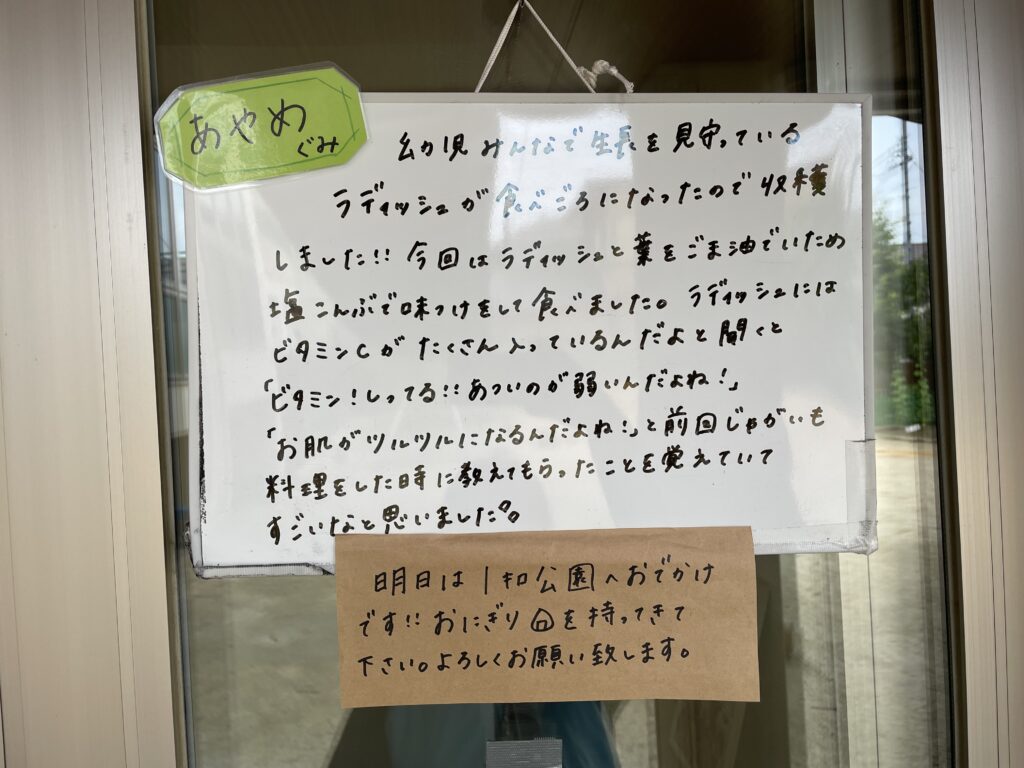 あやめ
ぐみ
幼児みんなで生長を見守っている
ラディッシュが食べごろになったので収穫
しました!! 今回はラディッシュと葉をごま油でいため
塩こんぶで味つけをして食べました。ラディッシュには
ビタミンCがたくさん入っているんだよと聞くと
「ビタミン!しってる!!あついのが弱いんだよね!」
「お肌がツルツルになるんだよね!」と前回じゃがいも
料理をした時に教えてもらったことを覚えていて
すごいなと思いました。
明日は 公園へおでかけ
です!! おにぎり🍙を持ってきて
下さい。よろしくお願い致します。